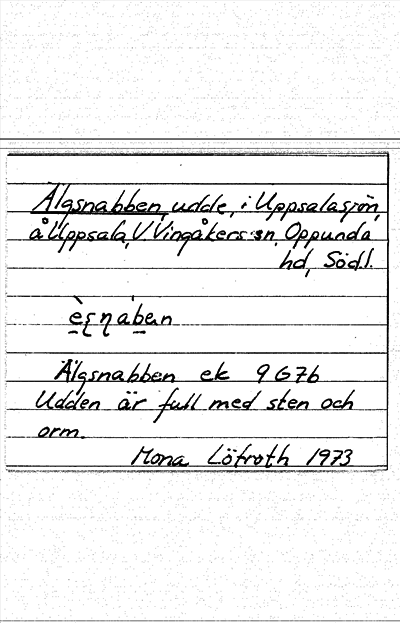 Älgsnabben, udde, i Uppsalasjön,
å Uppsala, V. Vingåkers sn, Oppunda
hd, Södl.
Älgsnabben ek 9G7b
Udden är full med sten och
orm.
Mona Löfroth 1973